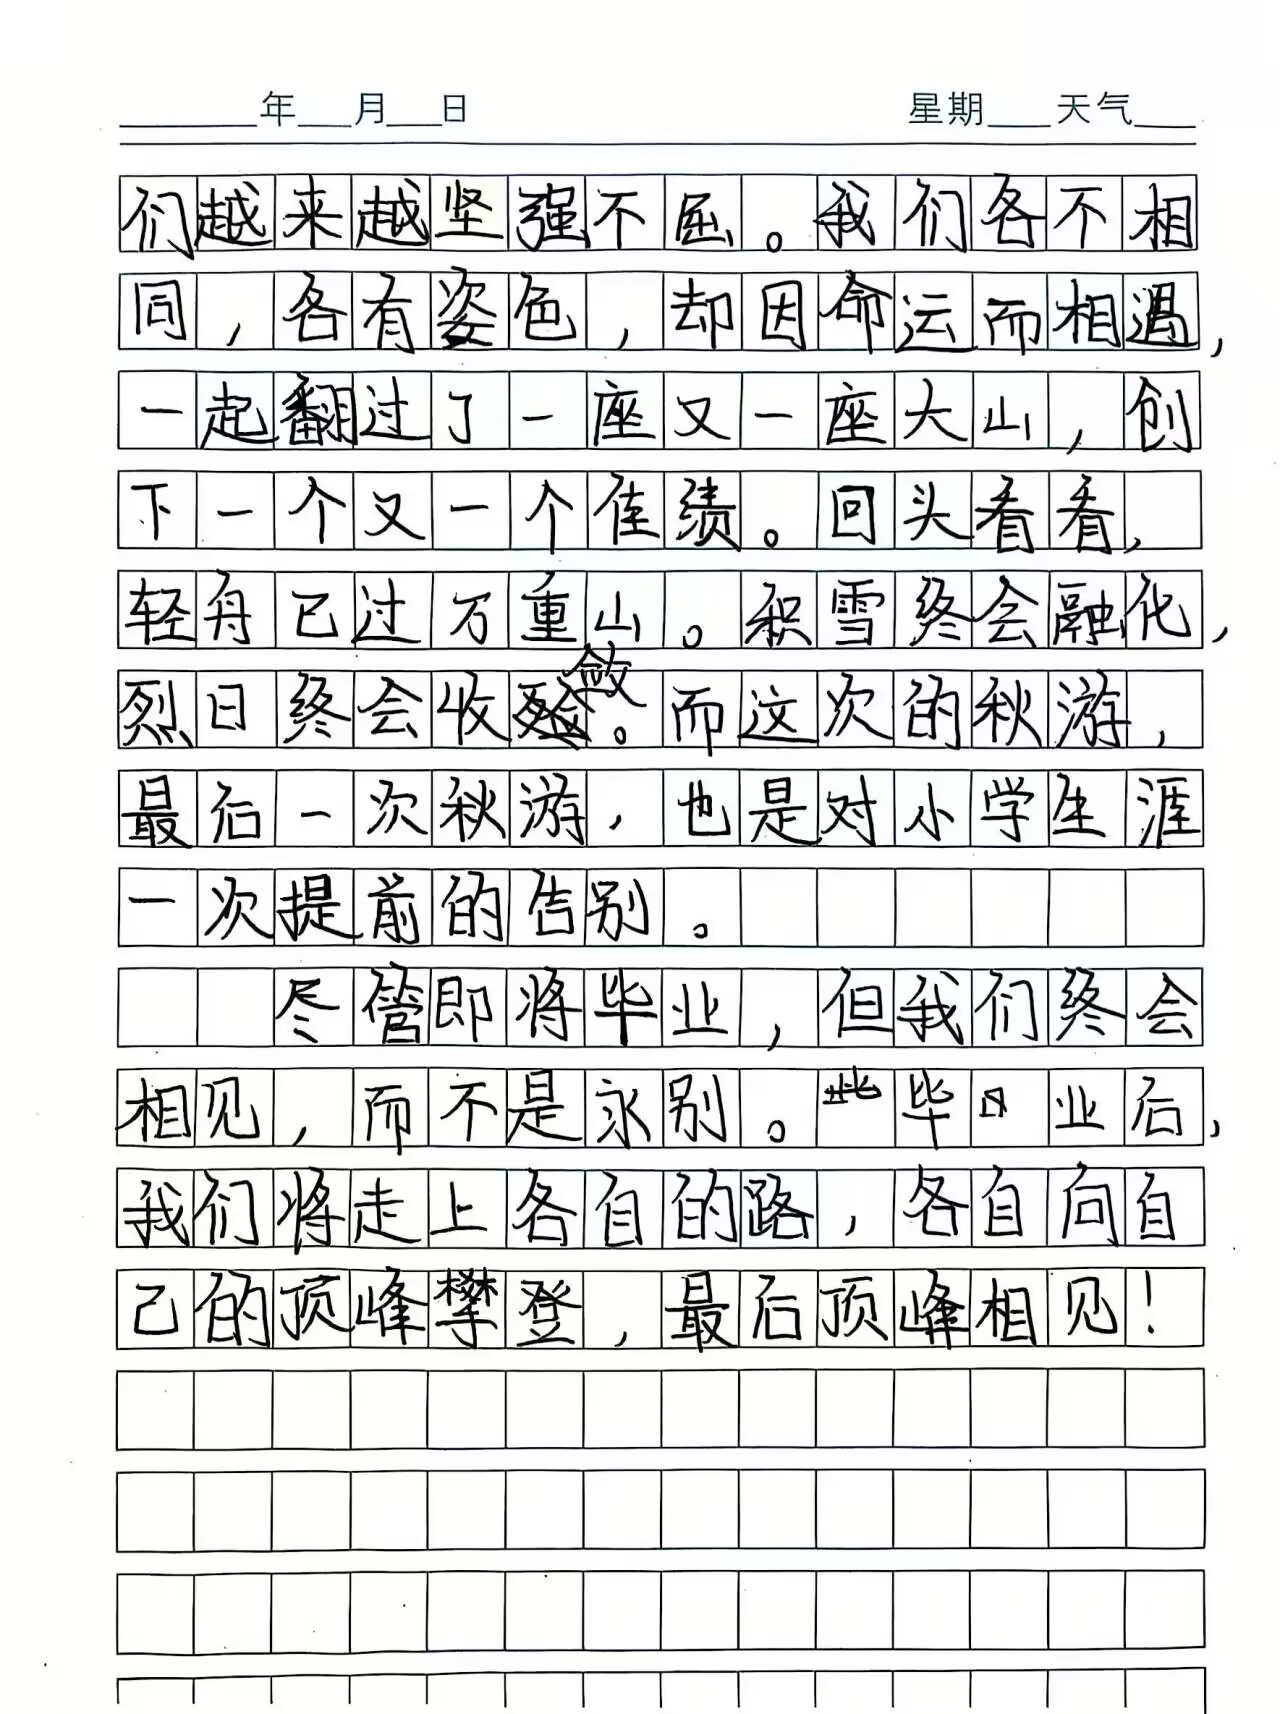 年 月 日 星期 天气
们越来越坚强不屈。我们各不相
同，各有姿色，却因命运而相遇，
一起翻过了一座又一座大山，创
下一个又一个佳绩。回头看看，
轻舟已过万重山。积雪终会融化，
烈日终会收敛。而这次的秋游，
最后一次秋游，也是对小学生涯
一次提前的告别。
尽管即将毕业，但我们终会
相见，而不是永别。毕业后，
我们将走上各自的路，各自向自
己的顶峰攀登，最后顶峰相见！